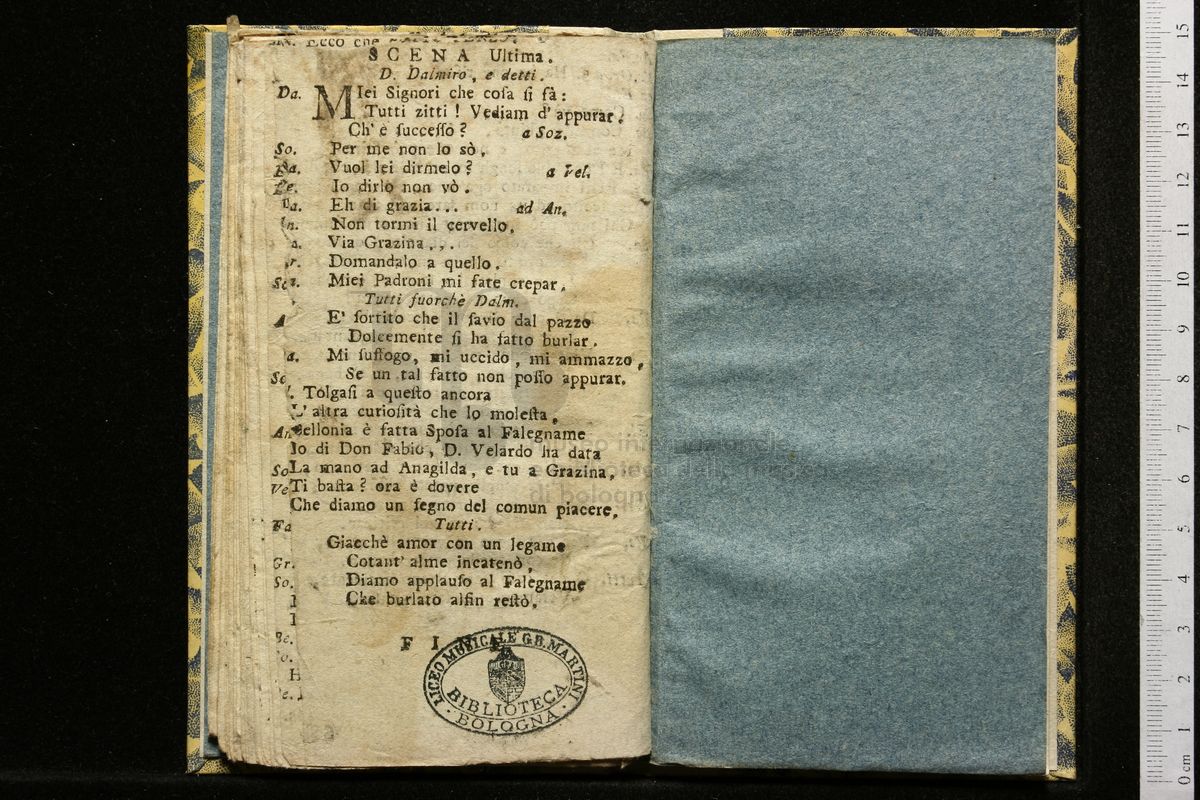 Ecco che
SCENA Ultima.
D. Dalmiro, e detti.
Da. MIei Signori che coſa ſi fà:
Tutti zitti ! Vediam d' appurar.
Ch' è ſucceſſo ? a Soz.
So. Per me non lo sò.
Da. Vuol lei dirmelo ? a Vel.
Ve. Io dirlo non vò.
Da. Eh di grazia... ad An.
An. Non tormi il cervello.
a. Via Grazina...
r. Domandalo a quello.
Miei Padroni mi fate crepar.
Tutti fuorchè Dalm.
E' ſortito che il ſavio dal pazzo
Dolcemente ſi ha fatto burlar.
a. Mi ſuffogo, mi uccido, mi ammazzo,
Se un tal fatto non poſſo appurar.
Tolgaſi a queſto ancora
L' altra curioſità che lo moleſta.
ellonia è fatta Spoſa al Falegname
Io di Don Fabio, D. Velardo ha data
La mano ad Anagilda, e tu a Grazina.
Ti baſta ? ora è dovere
Che diamo un ſegno del comun piacere.
Tutti.
Giacchè amor con un legame
Cotant' alme incatenò,
Diamo applauſo al Falegname
Che burlato alfin reſtò.
Sc
An
So
Ve
Fa
Gr.
So.
F I
LICEO MUSICALE G.B. MARTINI
BIBLIOTECA
· BOLOGNA ·
museo internazionale
e biblioteca della musica
di bologna
0 cm 1 2 3 4 5 6 7 8 9 10 11 12 13 14 15